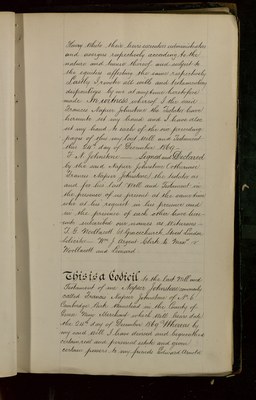 their heirs executors administrators
and assigns respectively according to the
nature and tenure thereof and subject to
the equities affecting the same respectively
Lastly I revoke all wills and testamentary
dispositions by me at anytime heretofore
made In witness whereof I the said
Francis Napier Johnstone the testator have
hereunto set my hand and I have also
set my hand to each of the six preceding
pages of this my last Will and Testament
this 24th day of December 1869
F. N. Johnstone Signed and Declared
by the said Napier Johnstone otherwise
Francis Napier Johnstone the testator as
and for his last Will and Testament in
the presence of us present at the same time
who at his request in his presence and
in the presence of each other have here
unto subscribed our names as Witnesses
Woollacott Gracechurch Street London
Solicitor Wm J. Clerk to Messrs
Woollacott and Leonard
This is a Codicil to the last Will and
Testament of me Napier Johnstone commonly
called Francis Napier Johnstone of No 6
Cambridge Park in the County of
Merchant which Will bears date
the 24th day of December 1869 Whereas by
my said Will I have devised and bequeathed
certain real and personal estate and given
certain powers to my friends Edward